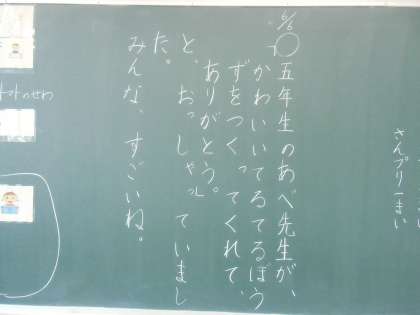 さんプリ一まい
6/6
○五年生のあべ先生が、
かわいいてるてるぼう
ずをつくってくれて、
ありがとう。
と、おっしゃっていまし
た。
みんな、すごいね。
トマトのせわ